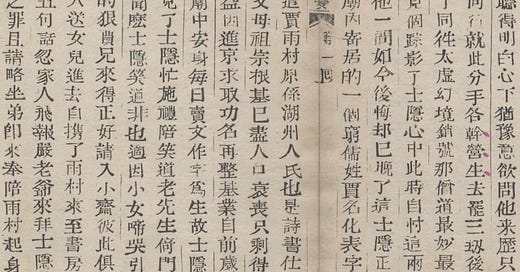 聽得明白心下猶豫意欲問他來歷只
同行就此分手各幹營生去罷三刼後
了同徃太虛幻境銷號那僧道最妙最
見個踪影了士隱心中此時自忖這兩
他一問如今後悔却已晚了這士隱正
廟內寄居的一個窮儒姓賈名化表字
第一囘
這賈雨村原係湖州人氏也是詩書仕
父母祖宗根基已盡人口衰喪只剩得
益因進京求取功名再整基業自前歲
廟中安身每日賣文作字爲生故士隱
見了士隱忙施禮陪笑道老先生倚門
聞麽士隱笑道非也適因小女啼哭引
的狠賈兄來得正好請入小齋彼此俱
人送女兒進去自携了雨村來至書房
五句話忽家人飛報嚴老爺來拜士隱
之罪且請略坐弟即來奉陪雨村起身